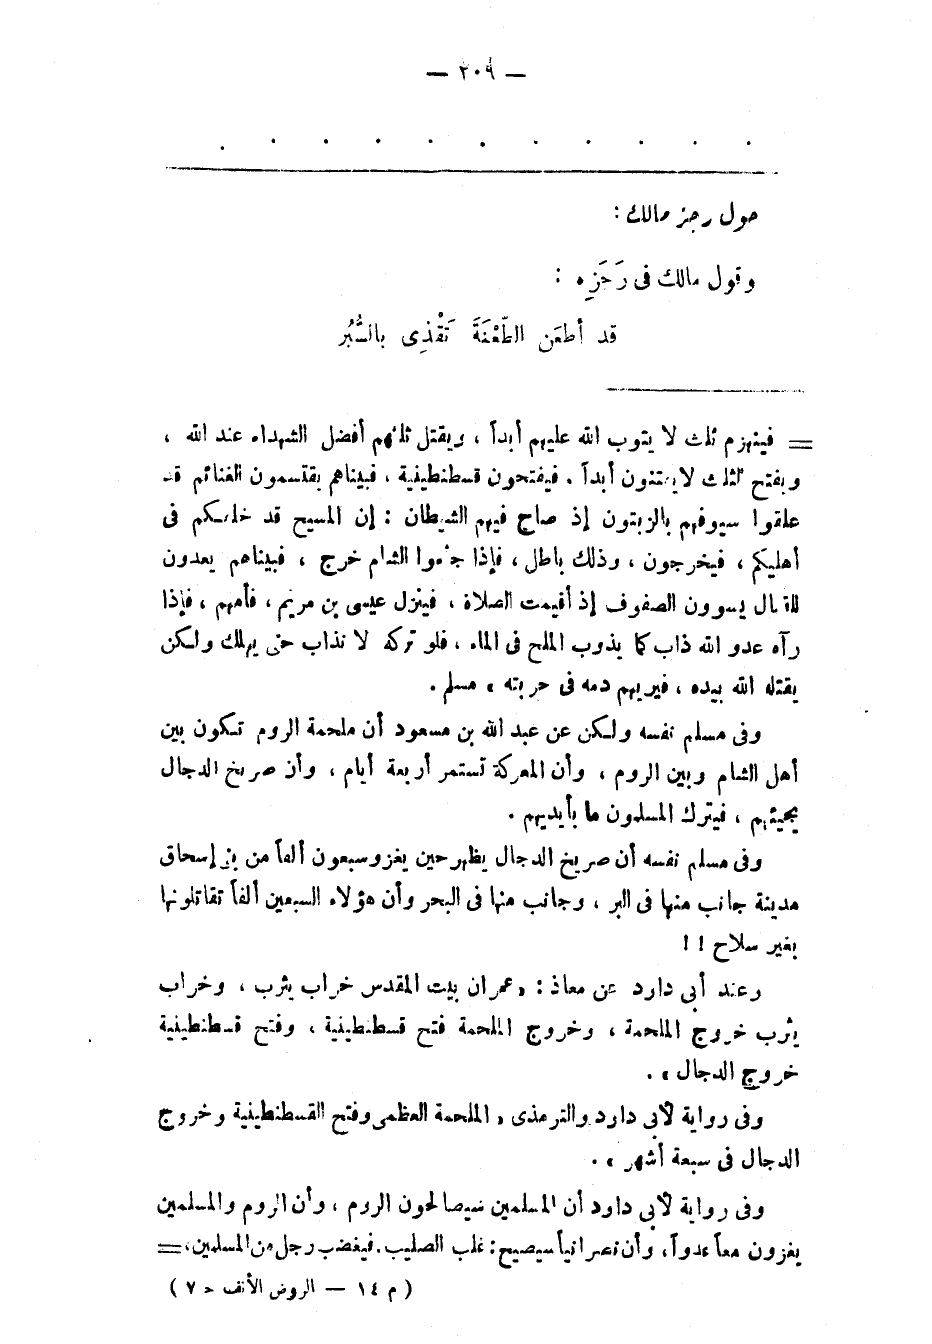 — ٢٠٩ —
. . . . . . . . . . .
حول رجز مالك :
وقول مالك فى رَجَزِه :
قد أطعَن الطّعْنَةَ تَقْذِى بالسُّبُر
= فينهزم ثلث لا يتوب الله عليهم أبداً ، ويقتل ثلثهم أفضل الشهداء عند الله ،
ويفتح الثلث لايفتنون أبداً . فيفتحون قسطنطينية ، فبيناهم يقتسمون الغنائم قد
علقوا سيوفهم بالزيتون إذ صاح فيهم الشيطان : إن المسيح قد خلفكم فى
أهليكم ، فيخرجون ، وذلك باطل ، فإذا جاءوا الشام خرج ، فبيناهم يعدون
للقتال يسوون الصفوف إذ أقيمت الصلاة ، فينزل عيسى بن مريم ، فأمهم ، فإذا
رآه عدو الله ذاب كما يذوب الملح فى الماء ، فلو تركه لا نذاب حتى يهلك ولكن
يقتله الله بيده ، فيريهم دمه فى حربته » مسلم .
وفى مسلم نفسه ولكن عن عبد الله بن مسعود أن ملحمة الروم تكون بين
أهل الشام وبين الروم ، وأن المعركة تستمر أربعة أيام ، وأن صريخ الدجال
يجيئهم ، فيترك المسلمون ما بأيديهم .
وفى مسلم نفسه أن صريخ الدجال يظهر حين يغزو سبعون ألفاً من بنى إسحاق
مدينة جانب منها فى البر ، وجانب منها فى البحر وأن هؤلاء السبعين ألفاً تقاتلونها
بغير سلاح ! !
وعند أبى داود عن معاذ : « عمران بيت المقدس خراب يثرب ، وخراب
يثرب خروج الملحمة ، وخروج الملحمة فتح قسطنطينية ، وفتح قسطنطينية
خروج الدجال » .
وفى رواية لأبى داود والترمذى « الملحمة العظمى وفتح القسطنطينية وخروج
الدجال فى سبعة أشهر » .
وفى رواية لأبى داود أن المسلمين سيصالحون الروم ، وأن الروم والمسلمين
يغزون معاً عدواً ، وأن نصرانياً سيصيح : غلب الصليب . فيغضب رجل من المسلمين ، =
( م ١٤ — الروض الأنف ج ٧ )